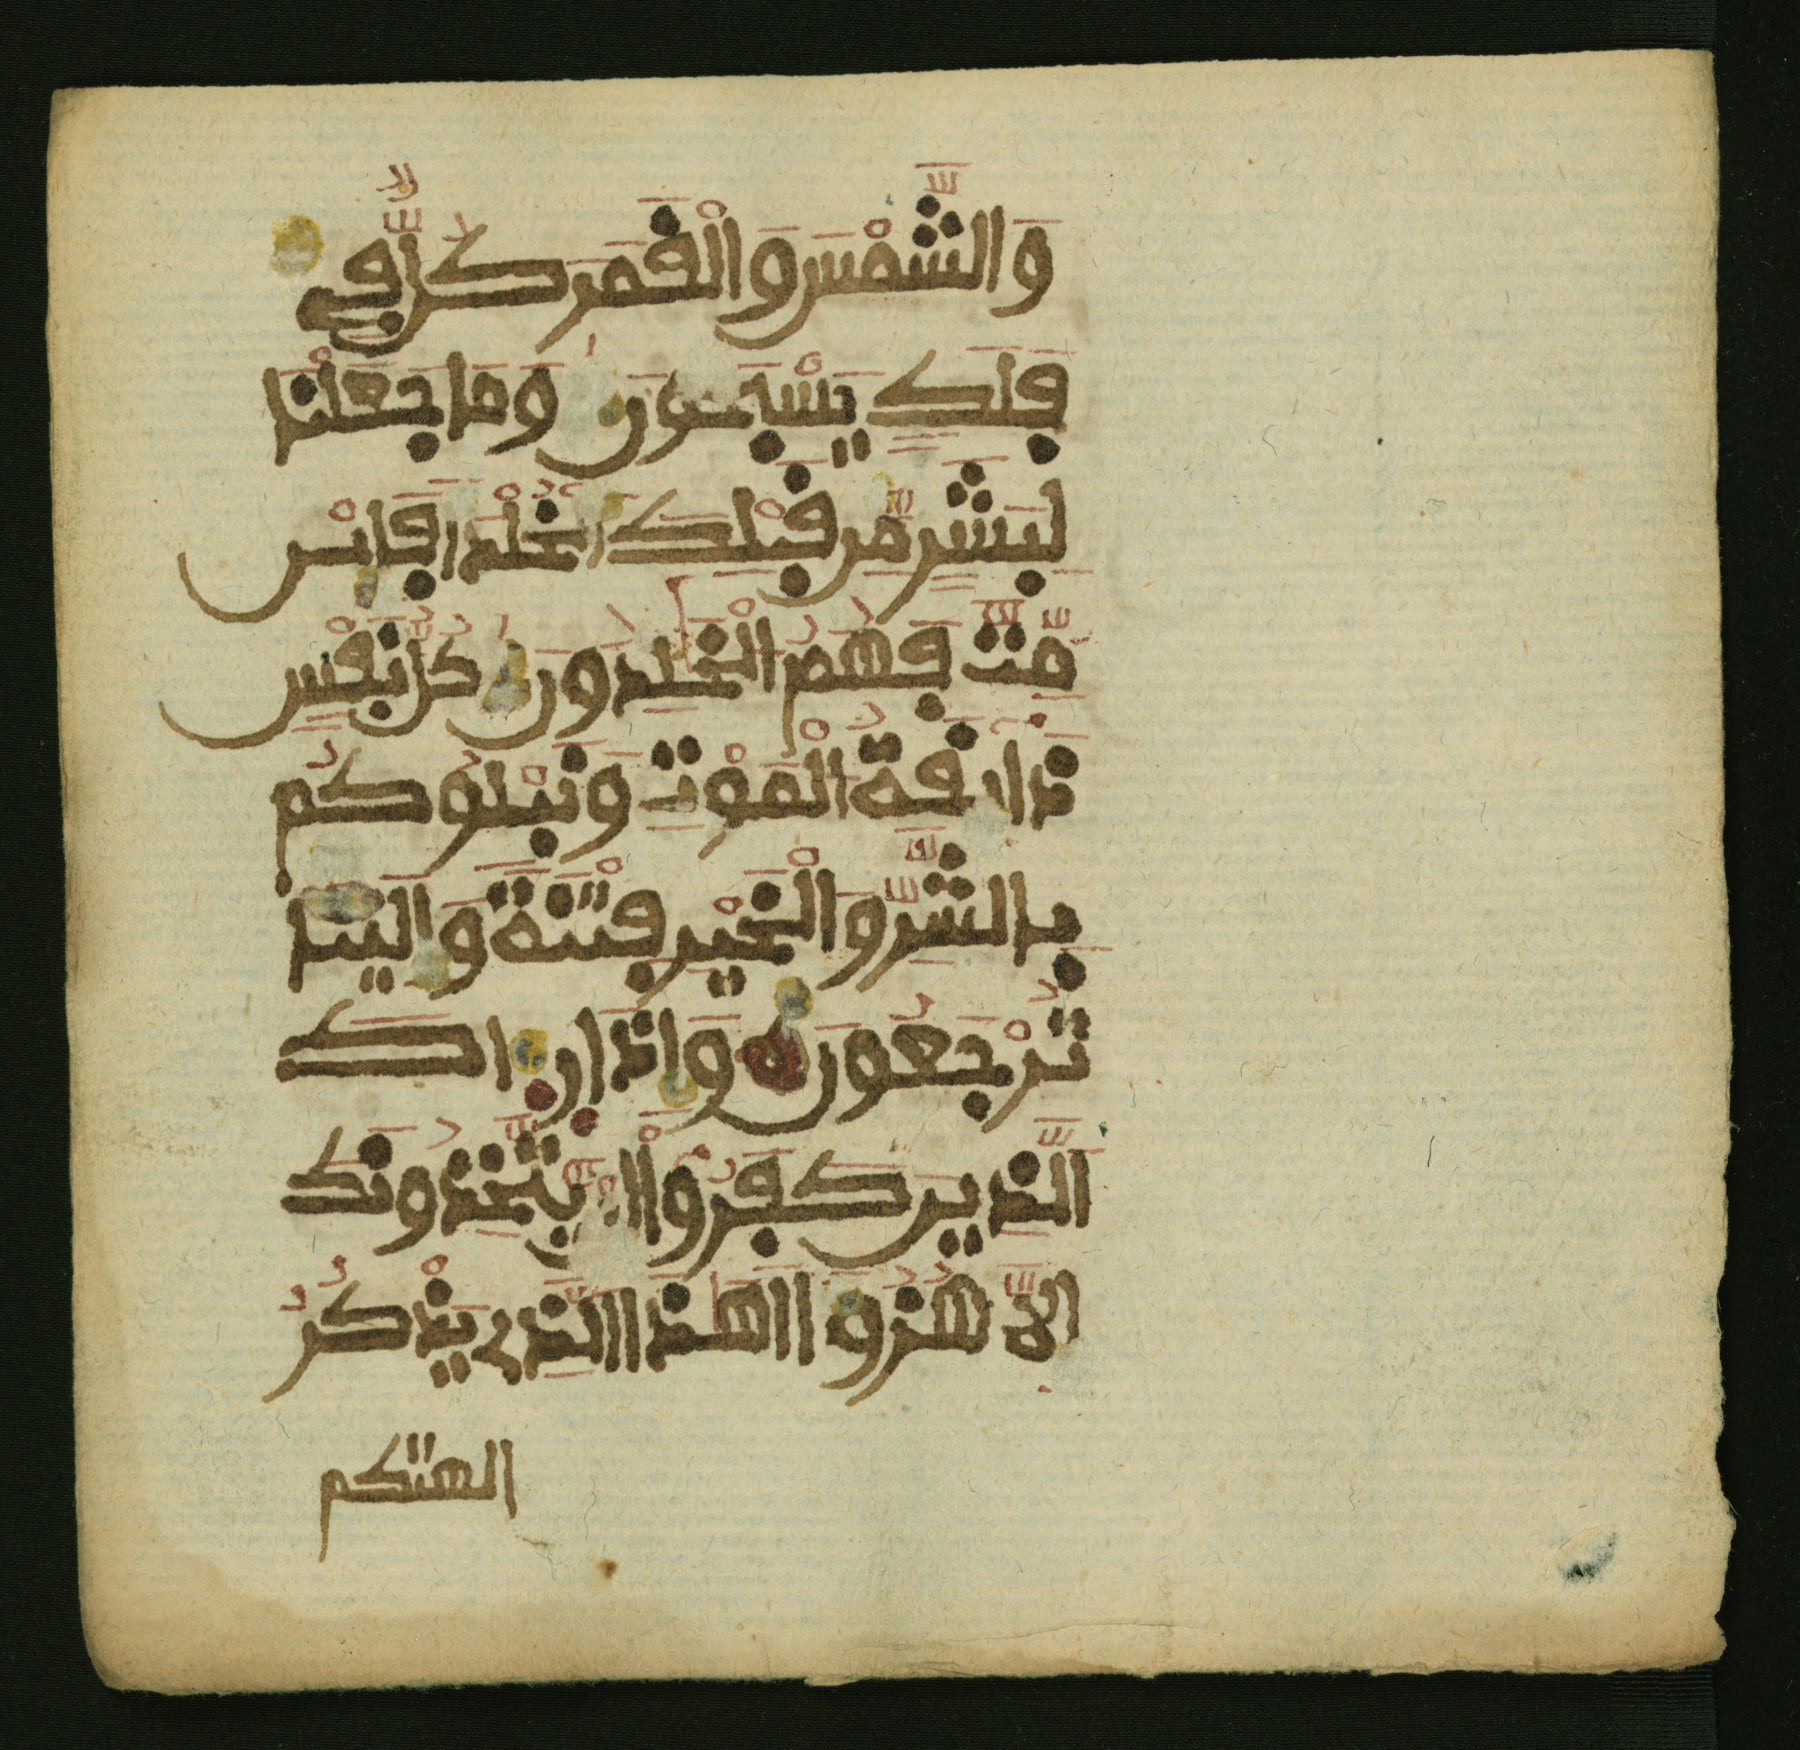 وَالشَّمْسَ وَالْقَمَرَ كُلٌّ فِي
فَلَكٍ يَسْبَحُونَ وَمَا جَعَلْنَا
لِبَشَرٍ مِّن قَبْلِكَ الْخُلْدَ أَفَإِين
مِّتَّ فَهُمُ الْخَلِدُونَ كُلُّ نَفْسٍ
ذَائِقَةُ الْمَوْتِ وَنَبْلُوكُم
بِالشَّرِّ وَالْخَيْرِ فِتْنَةً وَإِلَيْنَا
تُرْجَعُونَ وَإِذَا رَءَاكَ
الَّذِينَ كَفَرُوا إِن يَتَّخِذُونَكَ
إِلَّا هُزُؤًا أَهَذَا الَّذِي يَذْكُرُ
الهتكم